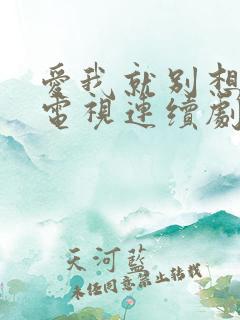 愛我就別想
電視連續劇
天河藍
未經同意禁止轉載